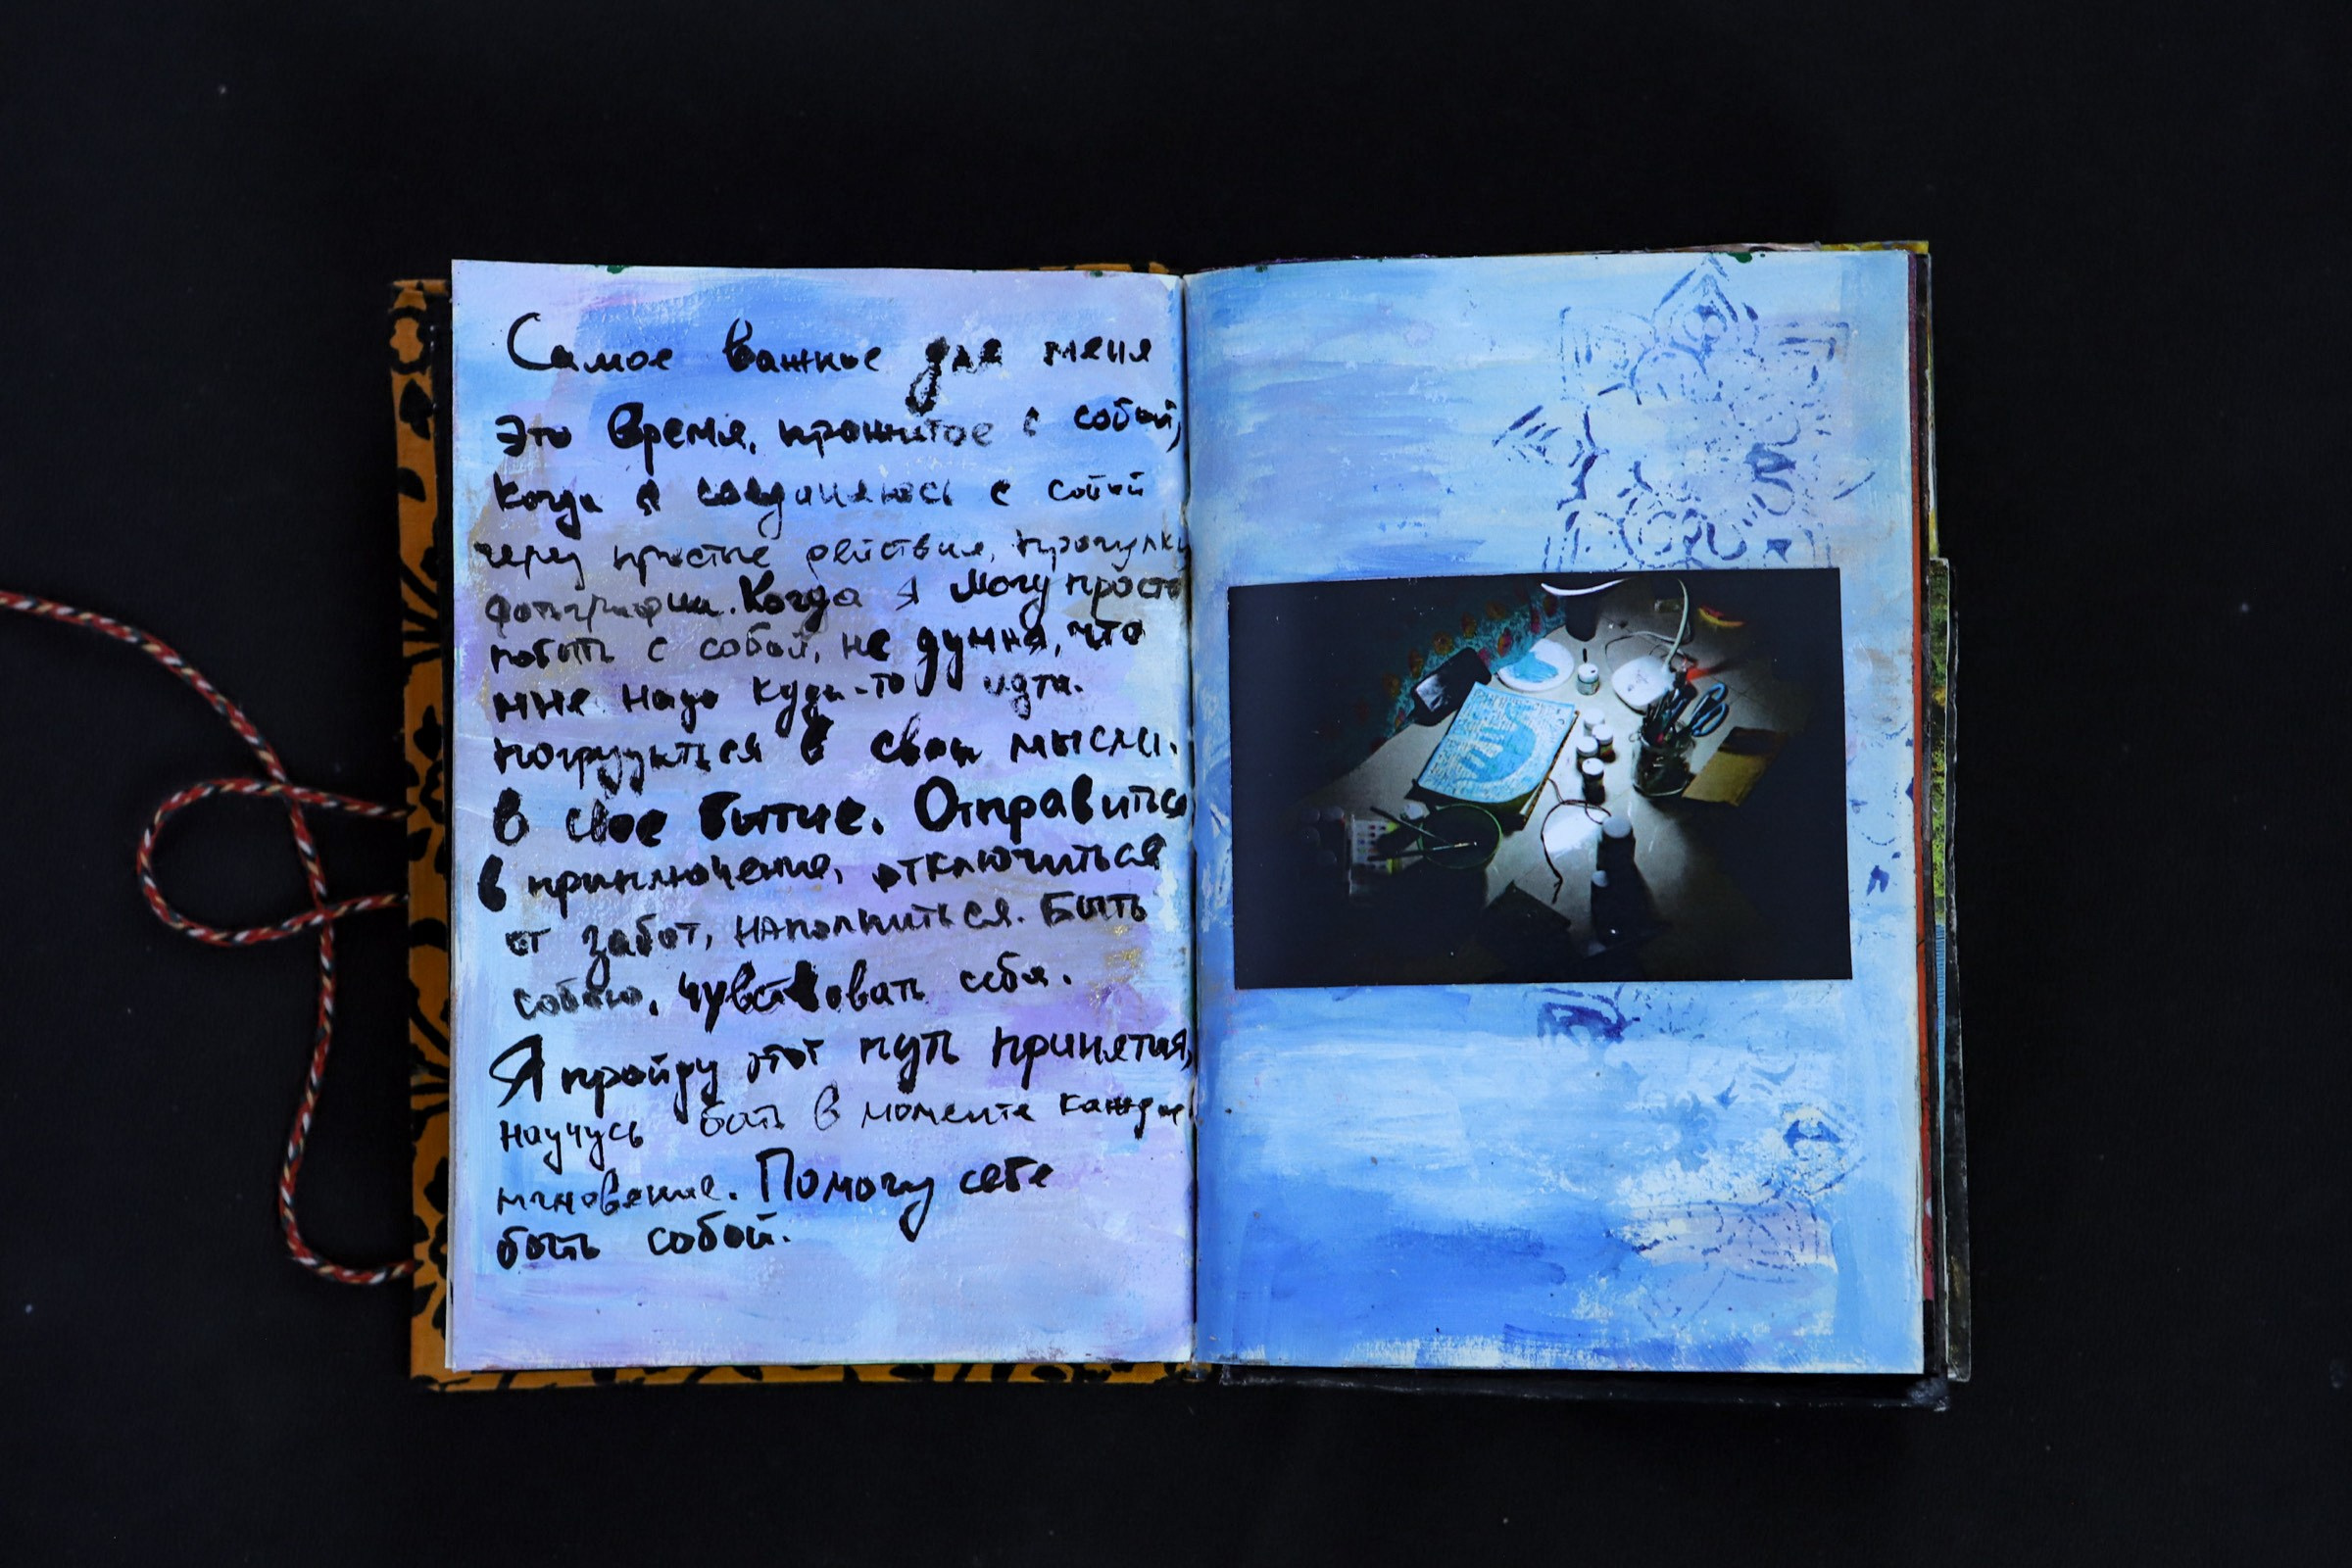 Самое важное для меня
это время, прожитое с собой,
когда я соединяюсь с собой
через простые действия, прогулки
фотографии. Когда я могу просто
побыть с собой, не думая, что
мне надо куда-то идти.
погрузиться в свои мысли.
В свое бытие. Отправиться
в приключение, отключиться
от забот, наполниться. Быть
собою, чувствовать себя.
Я пройду этот путь принятия,
научусь быть в моменте каждое
мгновение. Помогу себе
быть собой.